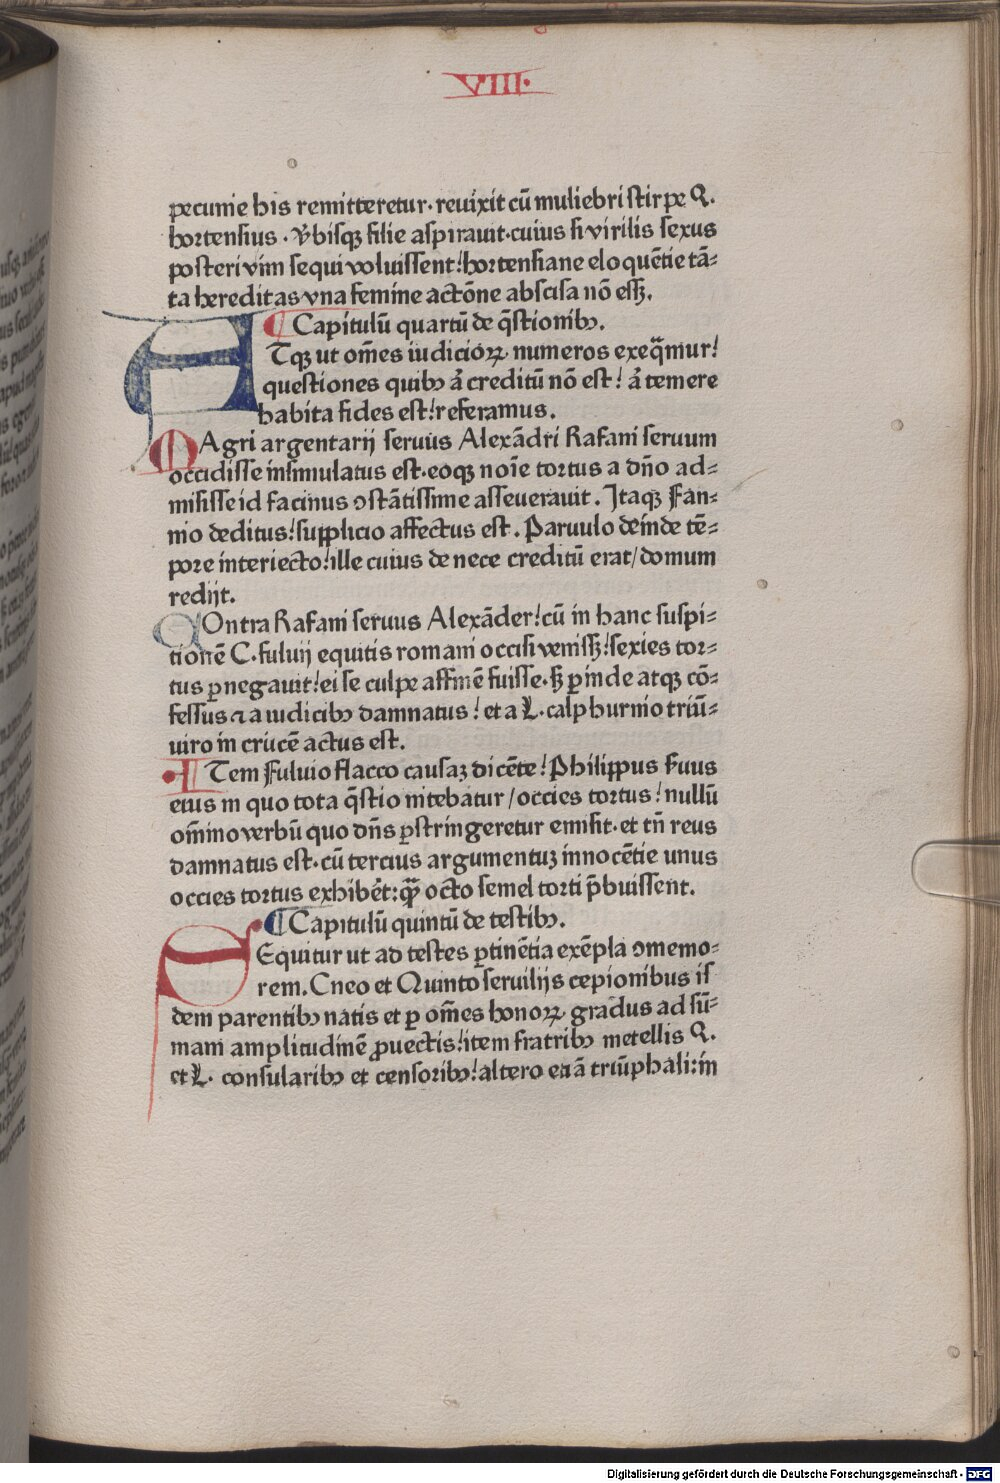 VIII·
pecunie his remitteretur· reuixit cū muliebri stirpe Q.
hortensius · Vbisqꝫ filie aspirauit·cuius si virilis sexus
posteri vim sequi voluissent! hortensiane eloquētie tā⸗
ta hereditas vna femine actōne abscisa nō essꝫ.
¶ Capitulū quartū de q̄stionibꝰ.
ATqꝫ ut om̄es iudicioꝝ numeros exeq̄mur!
questiones quibꝰ aut creditū nō est! aut temere
habita fides est! referamus.
MAgri argentarij seruus Alexādri Rafani seruum
occidisse insimulatus est·eoqꝫ noīe tortus a dn̄o ad⸗
misisse id facinus ꝯstātissime asseuerauit. Itaqꝫ Fan⸗
nio deditus! supplicio affectus est. Paruulo deinde tē⸗
pore interiecto! ille cuius de nece creditū erat/domum
redijt.
COntra Rafani seruus Alexāder! cū in hanc suspi⸗
tionē C. fuluij equitis romani occisi venissꝫ! sexies tor⸗
tus ꝑnegauit! ei se culpe affinē fuisse· sꝫ ꝑinde atqꝫ cō⸗
fessus ⁊ a iudicibꝰ damnatus! et a L. calphurnio triū⸗
uiro in crucē actus est.
ITem Fuluio flacco causaꝫ dicēte! Philippus seruus
eius in quo tota q̄stio nitebatur/occies tortus! nullū
om̄ino verbū quo dn̄s ꝑstringeretur emisit· et tn̄ reus
damnatus est· cū tercius argumentuꝫ innocētie unus
occies tortus exhibēt: qꝫ octo semel torti p̄buissent.
¶ Capitulū quintū de testibꝰ.
SEquitur ut ad testes ꝑtinētia exēpla ꝯmemo⸗
rem. Cneo et Quinto seruilijs cepionibus is
dem parentibꝰ natis et ꝑ om̄es honoꝝ gradus ad sū⸗
mam amplitudinē ꝓuectis! item fratribꝰ metellis Q.
et L. consularibꝰ et censoribꝰ! altero etiā triūphali: in
Digitalisierung gefördert durch die Deutsche Forschungsgemeinschaft - DFG